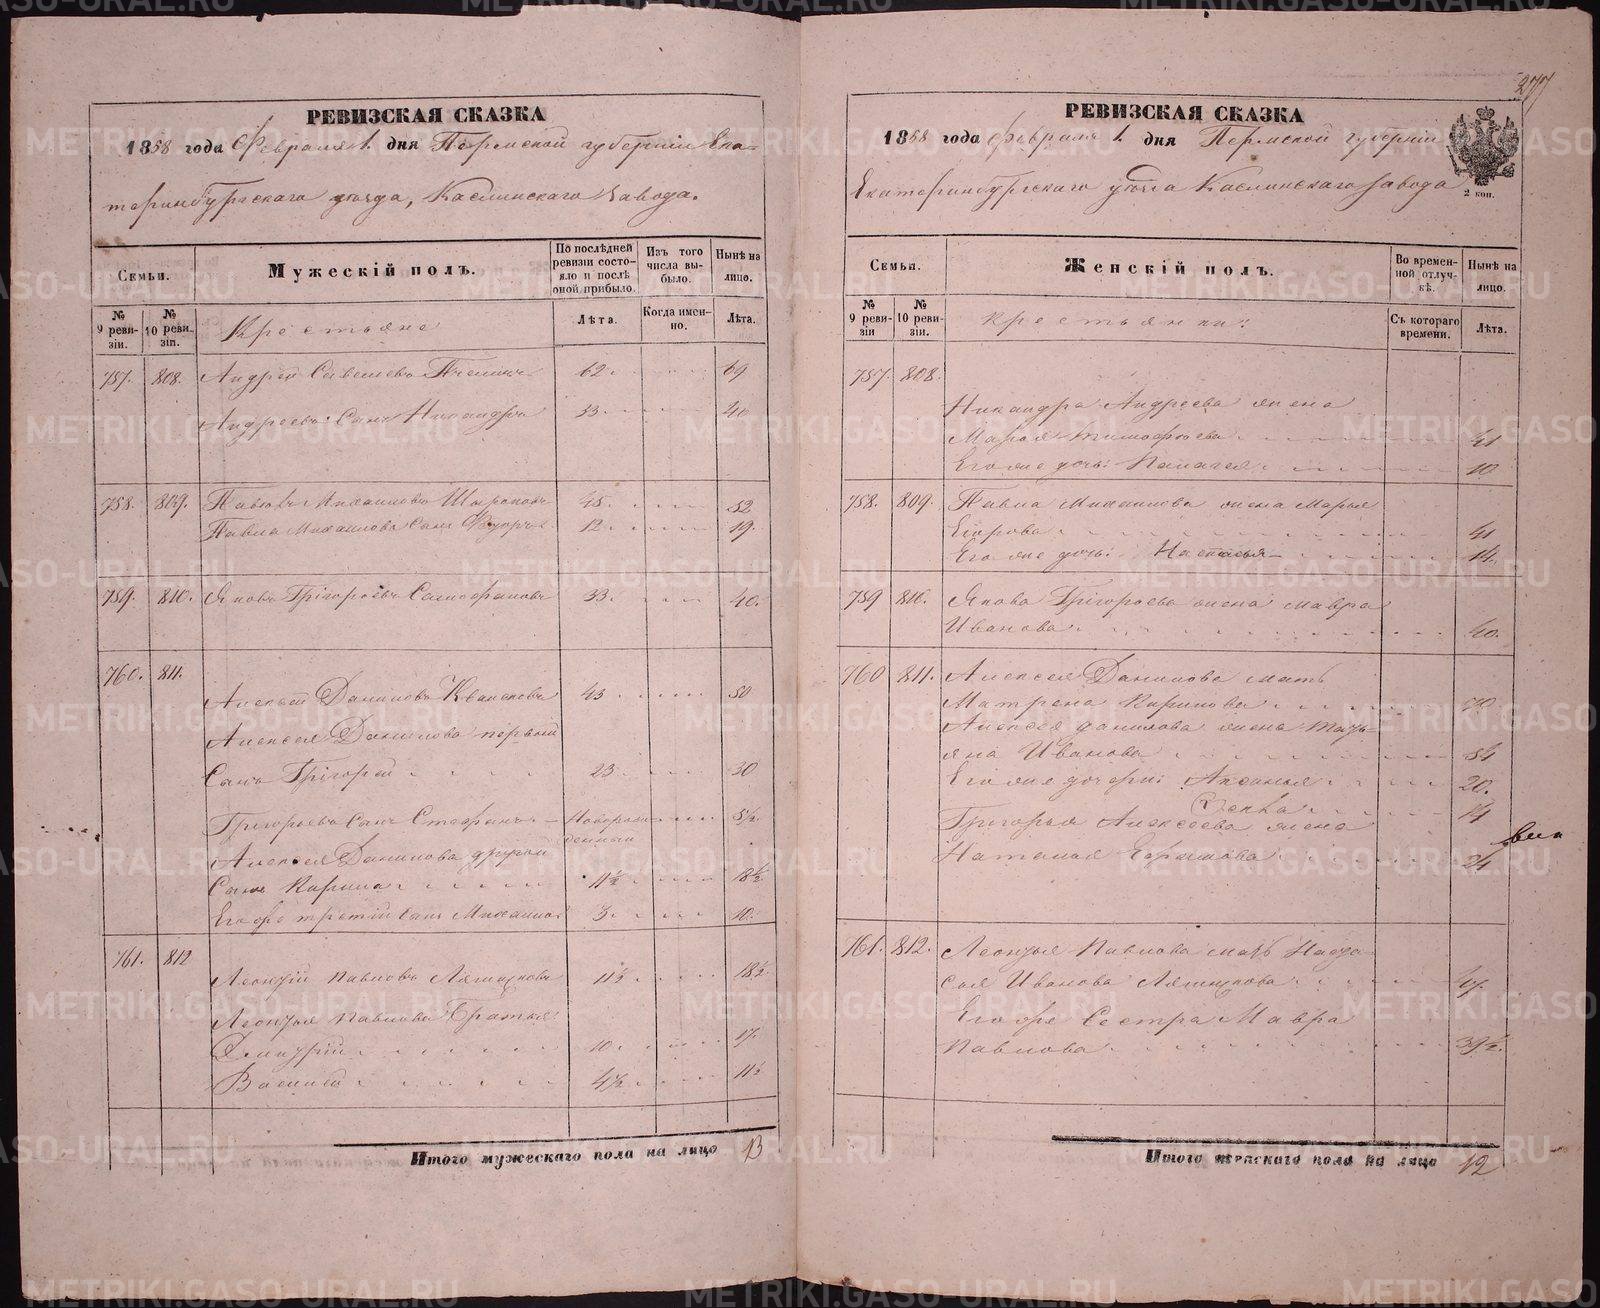 277
РЕВИЗСКАЯ СКАЗКА
1858 года Февраля 1. дня Пермской губерніи Ека-
теринбургскаго уѣзда, Каслинскаго Завода.
Семьи.
Мужескій полъ.
По послѣдней ревизіи состояло и послѣ оной прибыло.
Изъ того числа выбыло.
Нынѣ на лицо.
№ 9 ревизіи.
№ 10 ревизіи.
Крестьяне
Лѣта.
Когда именно.
Лѣта.
757. 808. Андрей Савельевъ 62 69
Андреевъ Сынъ Никандръ 33 40
758. 809. Павелъ Михаиловъ 45 52
Павла Михаилова Сынъ Федоръ 12 19.
759. 810. Яковъ Григорьевъ 33 40.
760. 811.
Алексѣй Даниловъ 43 50
Алексея Данилова первый
Сынъ Григорей 23 30
Григорьевъ Сынъ Стефанъ Новорож-
денный 8½
Алексея Данилова другой
Сынъ Кирила 11½ 18½
Его же третій Сынъ Михаило 3 10.
761. 812
Леонтій Павловъ 11½ 18½
Леонтья Павлова Братья:
Дмитрій 10 17.
Василей 4½ 11½
Итого мужескаго пола на лицо 13
РЕВИЗСКАЯ СКАЗКА
1858 года Февраля 1. дня Пермской губерніи
Екатеринбургскаго уѣзда Каслинскаго завода
2 коп.
Семьи.
Женскій полъ.
Во временной отлучкѣ.
Нынѣ на лицо.
№ 9 ревизіи
№ 10 ревизіи.
Крестьянки:
Съ котораго времени.
Лѣта.
757. 808.
Никандра Андреева жена
Марья Тимофѣева 41
Его же дочь: Палагея 10
758. 809. Павла Михаилова жена Марья
Егорова 41
Его же дочь: Настасья 14.
759 810. Якова Григорьева жена Мавра
Иванова 40.
760 811. Алексея Данилова мать
Матрена Кирилова 70
Алексея Данилова жена Тать-
яна Иванова 54
Его же дочери: Аксинья 20.
14
Григорья Алексѣева жена
Наталья 24
761. 812. Леонтья Павлова мать
Иванова 47.
Его же Сестра Мавра
Павлова
Итого женскаго пола на лицо 12
METRIKI.GASO-URAL.RU